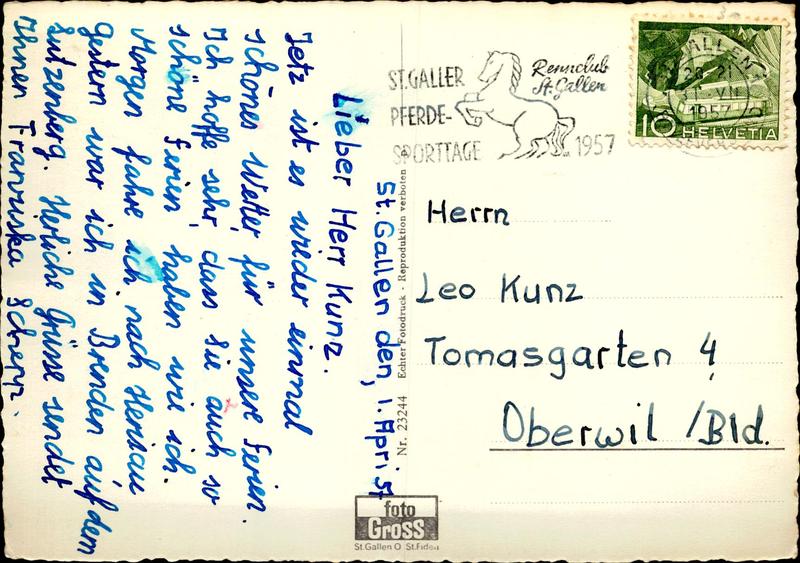 St. Gallen den, 1. April 57
Lieber Herr Kunz.
Jetz ist es wieder einmal
schönes Wetter, für unsere Ferien.
Ich hoffe sehr, dass Sie auch so
schöne Ferien haben wie ich.
Morgen fahre ich nach Herisau
gestern war ich in Brenden auf dem
Lutzenberg. Herliche Grüsse sendet
Ihnen Franziska
ST.GALLER
PFERDE-
SPORTTAGE
Rennclub
St. Gallen
1957
1957
10 HELVETIA
Herrn
Leo Kunz
Tomasgarten 4
Oberwil / Bld.
Nr. 23244 Echter Fotodruck - Reproduktion verboten
foto
Gross
St.Gallen O St.Fiden